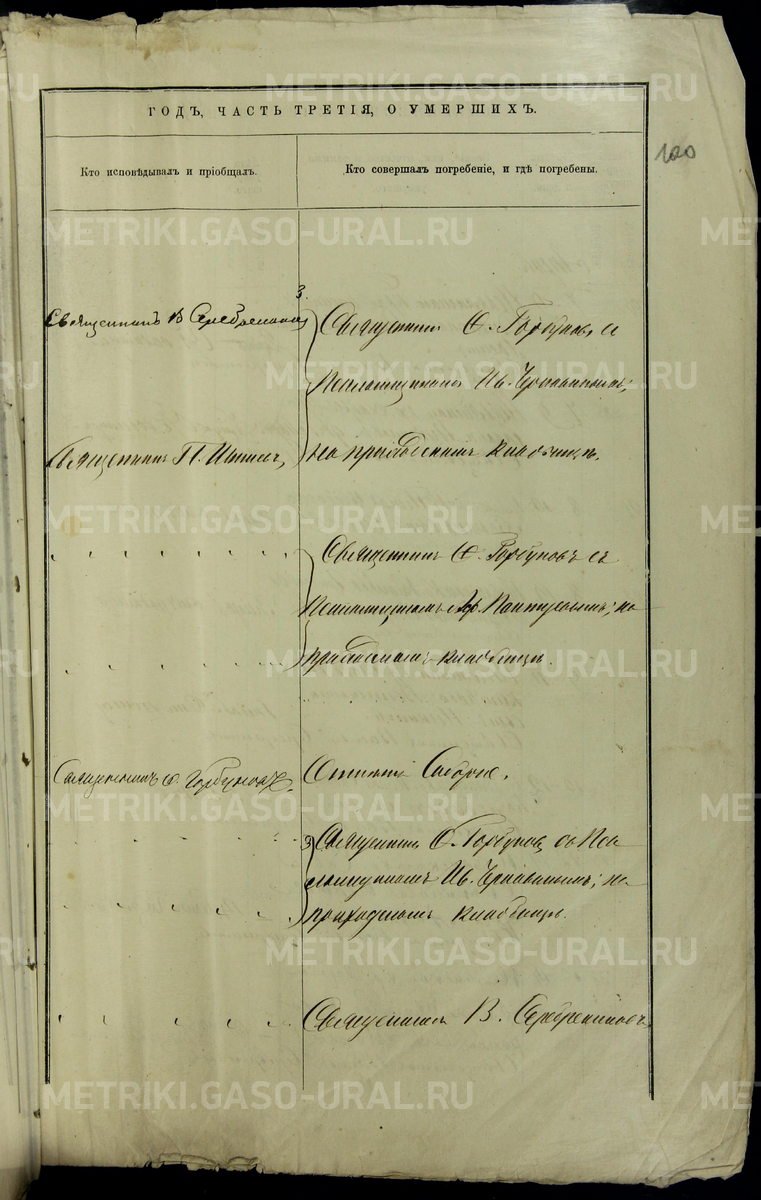 ГОДЪ, ЧАСТЬ ТРЕТІЯ, О УМЕРШИХЪ.
100
Кто исповѣдывалъ и пріобщалъ.
Кто совершалъ погребеніе, и гдѣ погребены.
3.
Священникъ В Серебрениковъ
Священникъ Ѳ. Горбуновъ съ
Псаломщикомъ Ив.
Священникъ П.
на приходскомъ кладбищѣ.
Священникъ Ѳ. Горбуновъ съ
Псаломщикомъ на
приходскомъ кладбищѣ.
Священникъ Ѳ. Горбуновъ.
Священникъ Ѳ. Горбуновъ съ Пса
ломщикомъ Ив. на
приходскомъ кладбищѣ.
Священникъ В. Серебрениковъ
METRIKI.GASO-URAL.RU